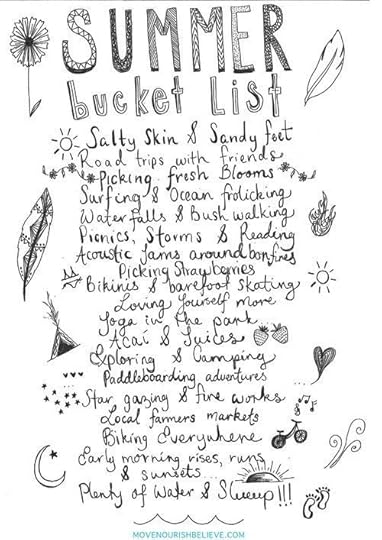 SUMMER
bucket List
Salty Skin & Sandy feet
Road trips with friends
Picking fresh Blooms
Surfing & Ocean frolicking
Waterfalls & Bush walking
Picnics, Storms & Reading
Acoustic Jams around bonfires
Picking Strawberries
Bikinis & barefoot skating
Loving yourself more
Yoga in the park
Acai & Juices
Exploring & Camping
Paddleboarding adventures
Star gazing & fire works
Local farmers markets
Biking Everywhere
Early morning rises, runs
& sunsets...
Plenty of Water & Sleeep!!!
MOVENOURISHBELIEVE.COM